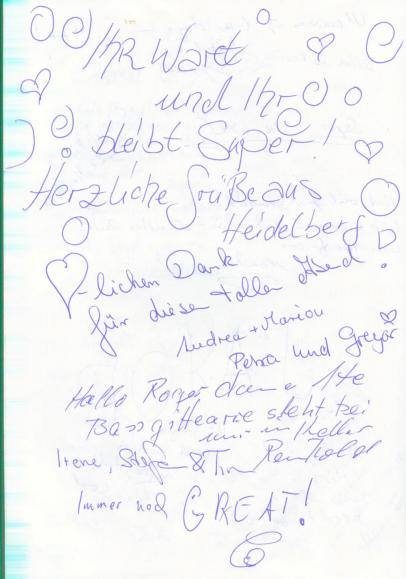 Ihr Wart
und Ihr
bleibt Super!
Herzliche Grüße aus
Heidelberg
-lichen Dank
für diesen tollen Abend!
Andrea + Marion
Petra und Gregor
Hallo Roger deine 1te
Bassgittearre steht bei
mir im Keller
Irene, Stefan & Tim
Immer noch GREAT!